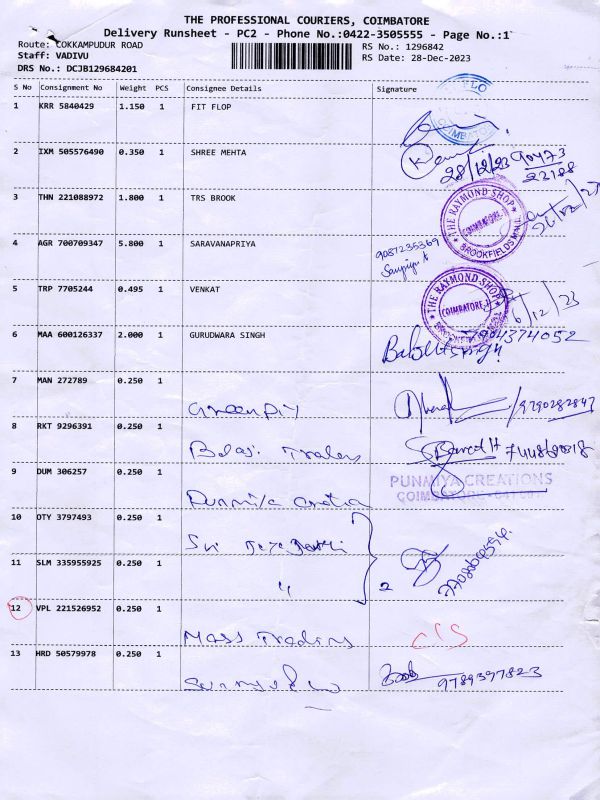 THE PROFESSIONAL COURIERS, COIMBATORE
Delivery Runsheet - PC2 - Phone No.:0422-3505555 - Page No.:1
Route: COKKAMPUDUR ROAD
RS No.: 1296842
Staff: VADIVU
RS Date: 28-Dec-2023
DRS No.: DCJB129684201
S No Consignment No Weight PCS Consignee Details Signature
1 KRR 5840429 1.150 1 FIT FLOP
COIMBATORE
2 IXM 505576490 0.350 1 SHREE MEHTA
28/12/23 90473
22128
3 THN 221088972 1.800 1 TRS BROOK
THE RAYMOND SHOP
COIMBATORE
BROOKFIELDS MALL
4 AGR 700709347 5.800 1 SARAVANAPRIYA
9087235369
5 TRP 7705244 0.495 1 VENKAT
THE RAYMOND SHOP
COIMBATORE
6 MAA 600126337 2.000 1 GURUDWARA SINGH
7 MAN 272789 0.250 1
Greenply /9790282847
8 RKT 9296391 0.250 1
Balaji Traders
9 DUM 306257 0.250 1
PUNANIYA CREATIONS
10 OTY 3797493 0.250 1
Sri
11 SLM 335955925 0.250 1
" 2
12 VPL 221526952 0.250 1
Mass Traders C/S
13 HRD 50579978 0.250 1
9789397823